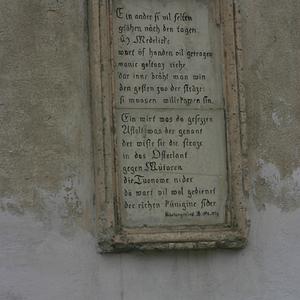 Ein ander si vil selten
gesâhen nâch den tagen.
Uz Medelicke
wart ûf handen vil getragen
manic goltvaz riche
dar inne brâht man win
den gesten zuo der strâze:
si muosen willekomen sin.
Ein wirt was da gesezzen
Astolt was der genant
der wîste sie die straze
in das Osterlant
gegen Mûtaren
die Tuonowe nider
dâ wart vil wol gedienet
der rîchen künigine sider
Nibelungenlied